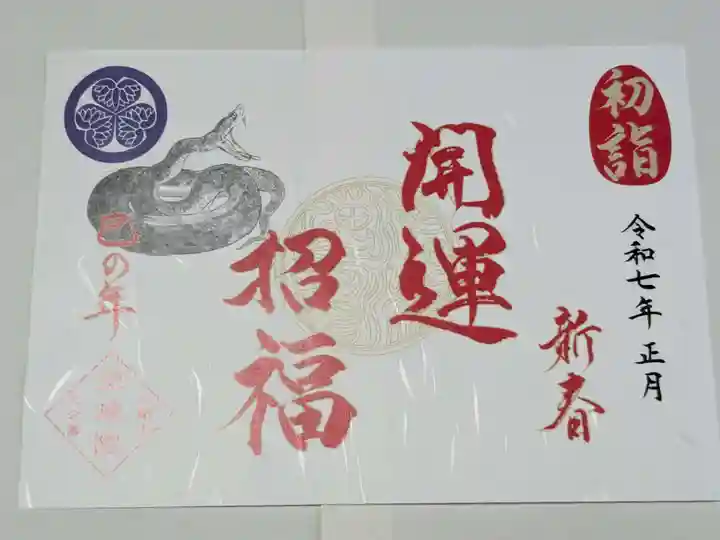 初詣
令和七年 正月
新春
開運
招福
巳の年